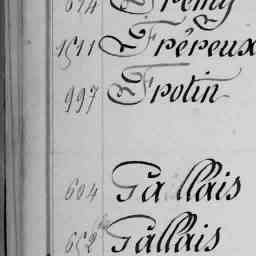 674 Frémy
1511 Fréreux
997 Frotin
604 Gallais
652 bis Gallais